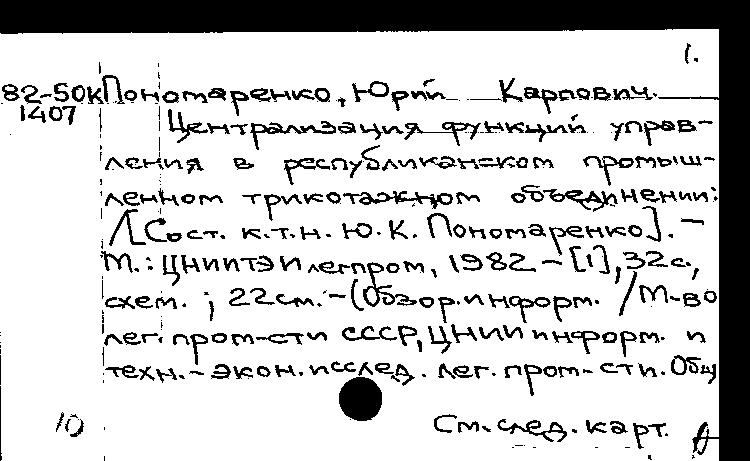 1.
82-50к Пономаренко, Юрий Карпович.
1407 Централизация функций управ-
ления в республиканском промыш-
ленном трикотажном объединении:
/[Сост. к.т.н. Ю.К. Пономаренко]. -
М.: ЦНИИТЭИлегпром, 1982 - [1], 32с.,
схем. ; 22см. - (Обзор. информ. / М-во
лег. пром-сти СССР, ЦНИИ информ. и
техн.-экон. исслед. лег. пром-сти. Общ
10 См. след. карт.